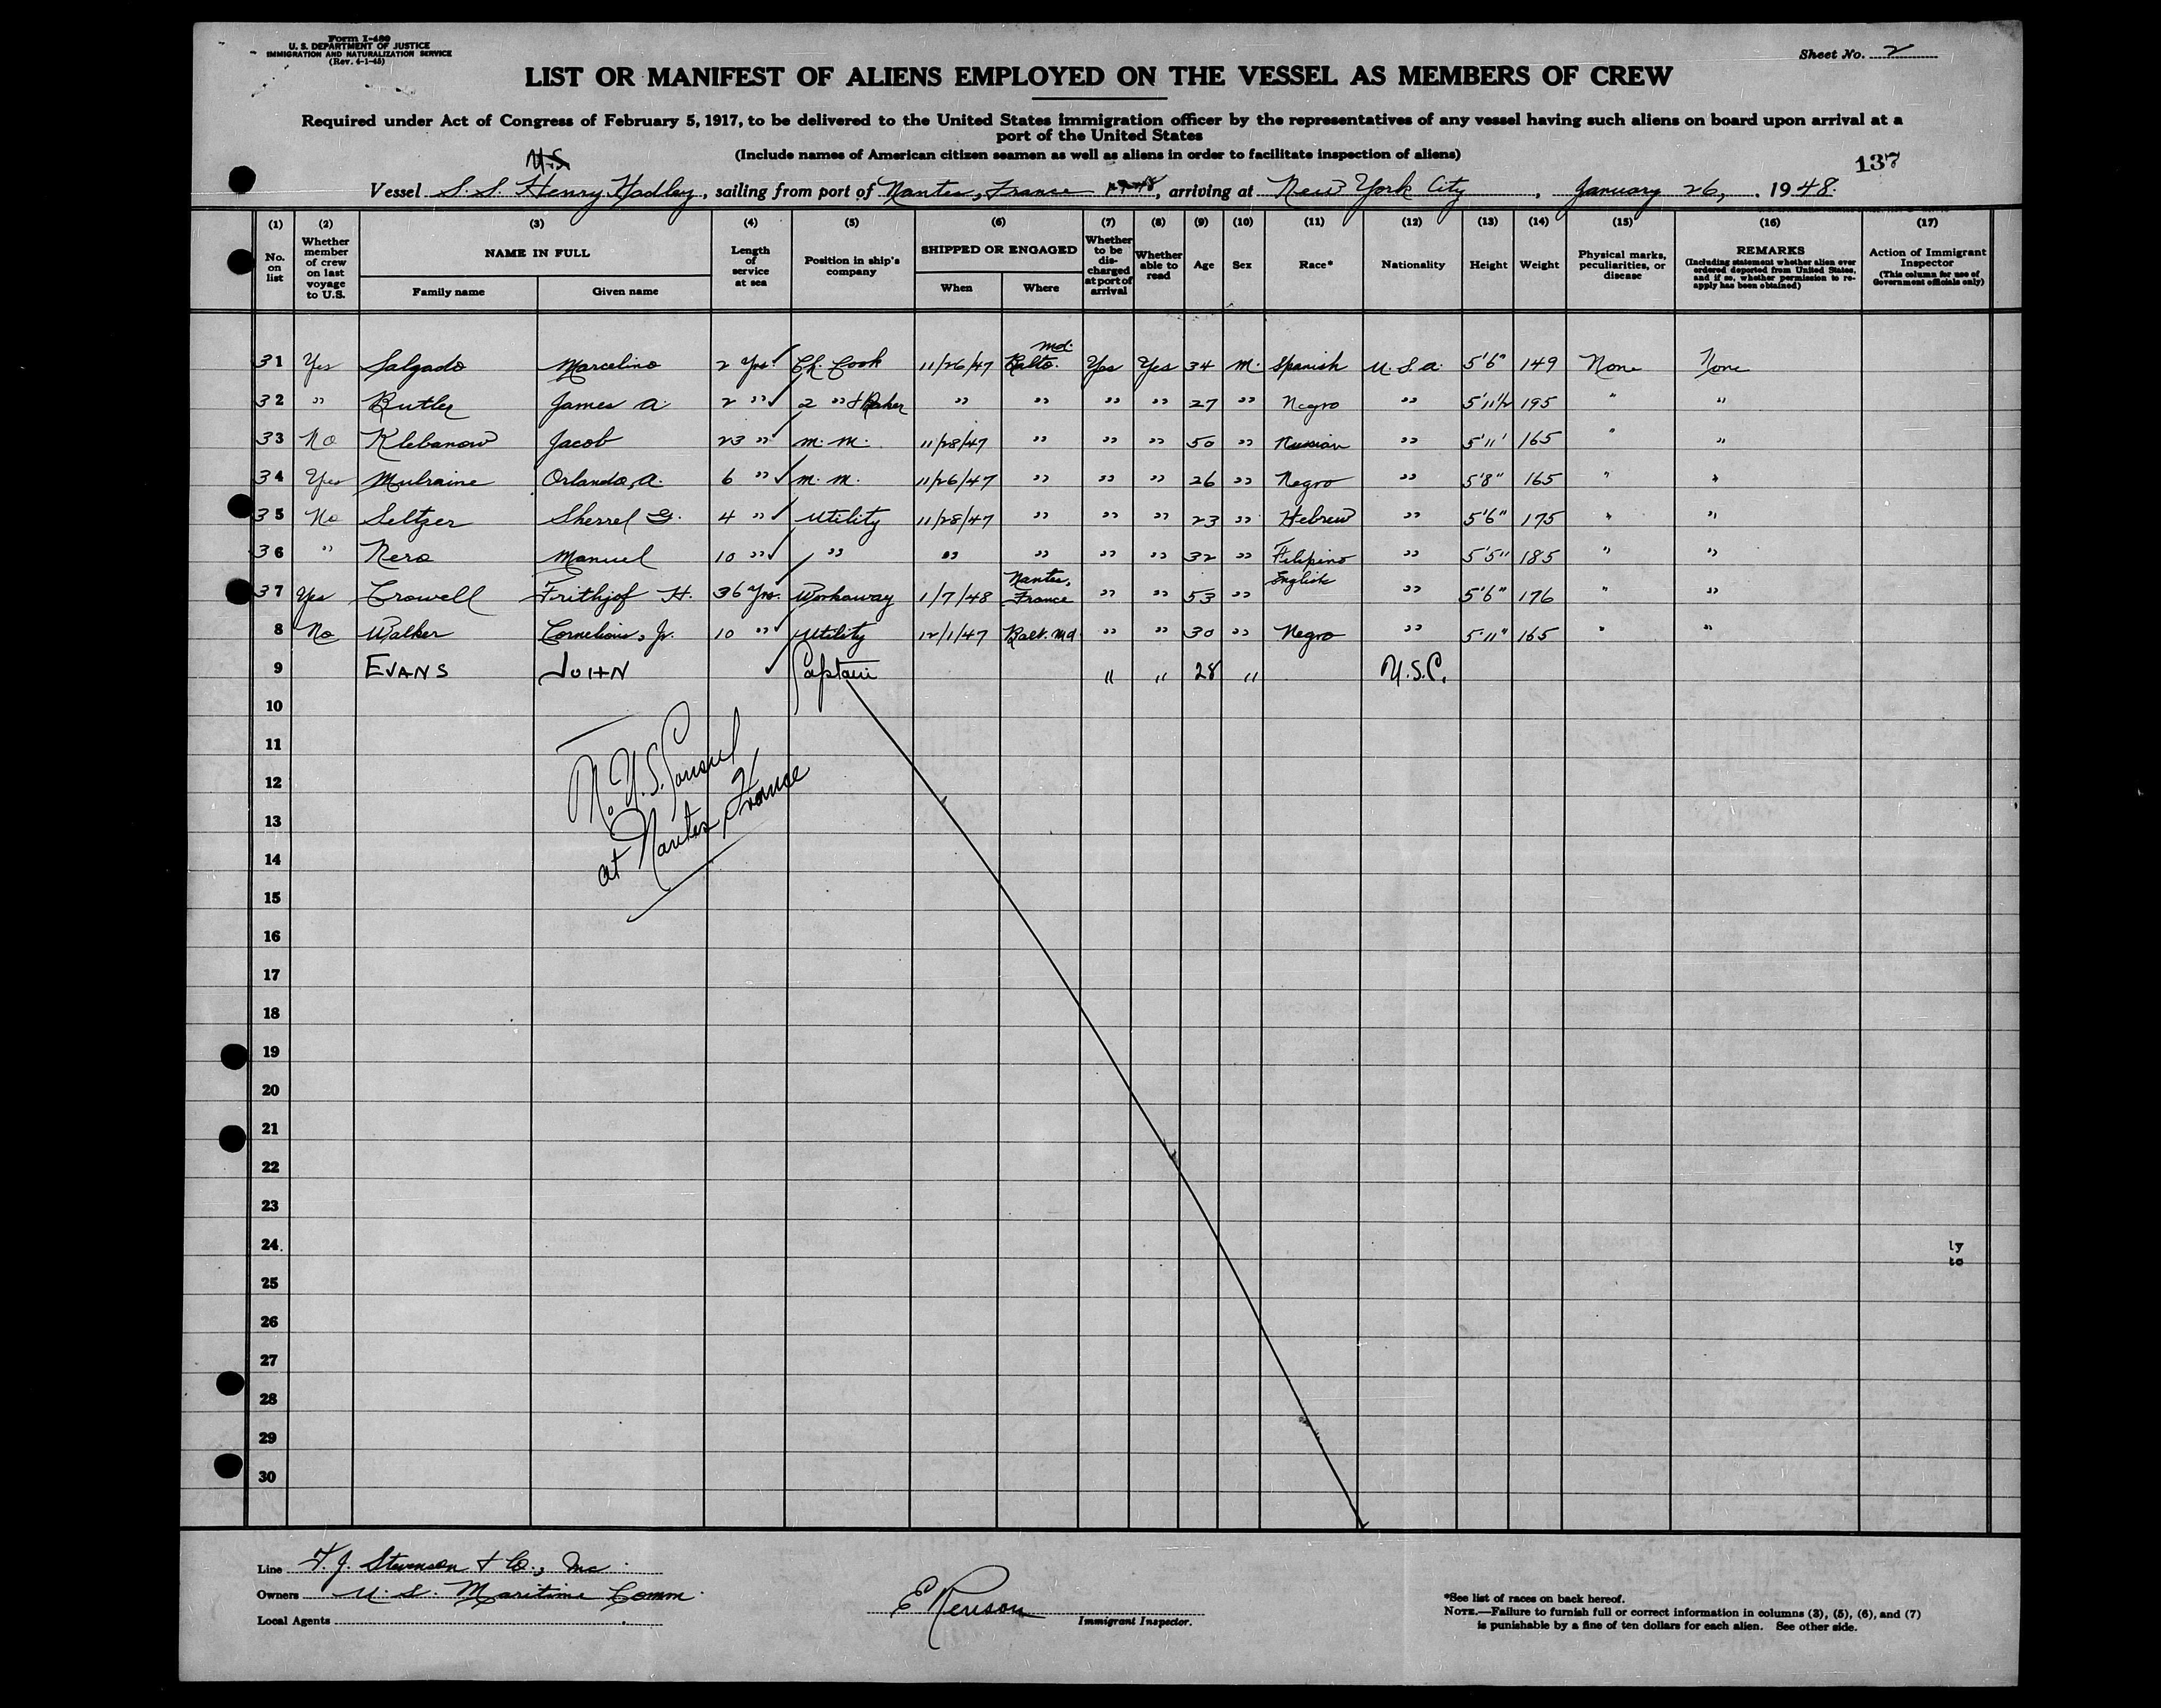 Form I-480
U. S. DEPARTMENT OF JUSTICE
IMMIGRATION AND NATURALIZATION SERVICE
(Rev. 4-1-45)
Sheet No. 2
LIST OR MANIFEST OF ALIENS EMPLOYED ON THE VESSEL AS MEMBERS OF CREW
Required under Act of Congress of February 5, 1917, to be delivered to the United States immigration officer by the representatives of any vessel having such aliens on board upon arrival at a
port of the United States
(Include names of American citizen seamen as well as aliens in order to facilitate inspection of aliens)
137
U.S.
Vessel S.S. Henry Hadley, sailing from port of Nantes, France, arriving at New York City, January 26, 1948.
(1) (2) (3) (4) (5) (6) (7) (8) (9) (10) (11) (12) (13) (14) (15) (16) (17)
No. on list
Whether member of crew on last voyage to U.S.
NAME IN FULL
Family name Given name
Length of service at sea
Position in ship's company
SHIPPED OR ENGAGED
When Where
Whether to be discharged at port of arrival
Whether able to read
Age Sex Race* Nationality Height Weight
Physical marks, peculiarities, or disease
REMARKS
(Including statement whether alien ever ordered deported from United States, and if so, whether permission to reapply has been obtained)
Action of Immigrant Inspector
(This column for use of Government officials only)
31 Yes Salgado Marcelino 2 Yrs. Ch. Cook 11/26/47 Balto. Md. Yes Yes 34 M. Spanish U.S.A. 5'6" 149 None None
32 " Butler James A. 2 " 2 " & Baker " " " " 27 " Negro " 5'11½ 195 " "
33 No Klebanow Jacob 23 " M.M. 11/28/47 " " " 50 " Russian " 5'11' 165 " "
34 Yes Mulraine Orlando, A. 6 " M.M. 11/26/47 " " " 26 " Negro " 5'8" 165 " "
35 No Seltzer Sherrel G. 4 " Utility 11/28/47 " " " 23 " Hebrew " 5'6" 175 " "
36 " Nero Manuel 10 " " " " " " 32 " Filipino " 5'5" 185 " "
37 Yes Crowell Frithjof H. 36 Yrs. Workaway 1/7/48 Nantes, France " " 53 " English " 5'6" 176 " "
8 No Walker Cornelious, Jr. 10 " Utility 12/1/47 Balt. Md. " " 30 " Negro " 5'11" 165 " "
9 EVANS JOHN Captain " " 28 " U.S.C.
10
11
12
13
14
15
16
17
18
19
20
21
22
23
24
25
26
27
28
29
30
No U.S. Consul
at Nantes, France
ly
to
Line T. J. Stevenson & Co., Inc.
Owners U. S. Maritime Comm.
Local Agents
Immigrant Inspector.
*See list of races on back hereof.
NOTE.—Failure to furnish full or correct information in columns (3), (5), (6), and (7)
is punishable by a fine of ten dollars for each alien. See other side.